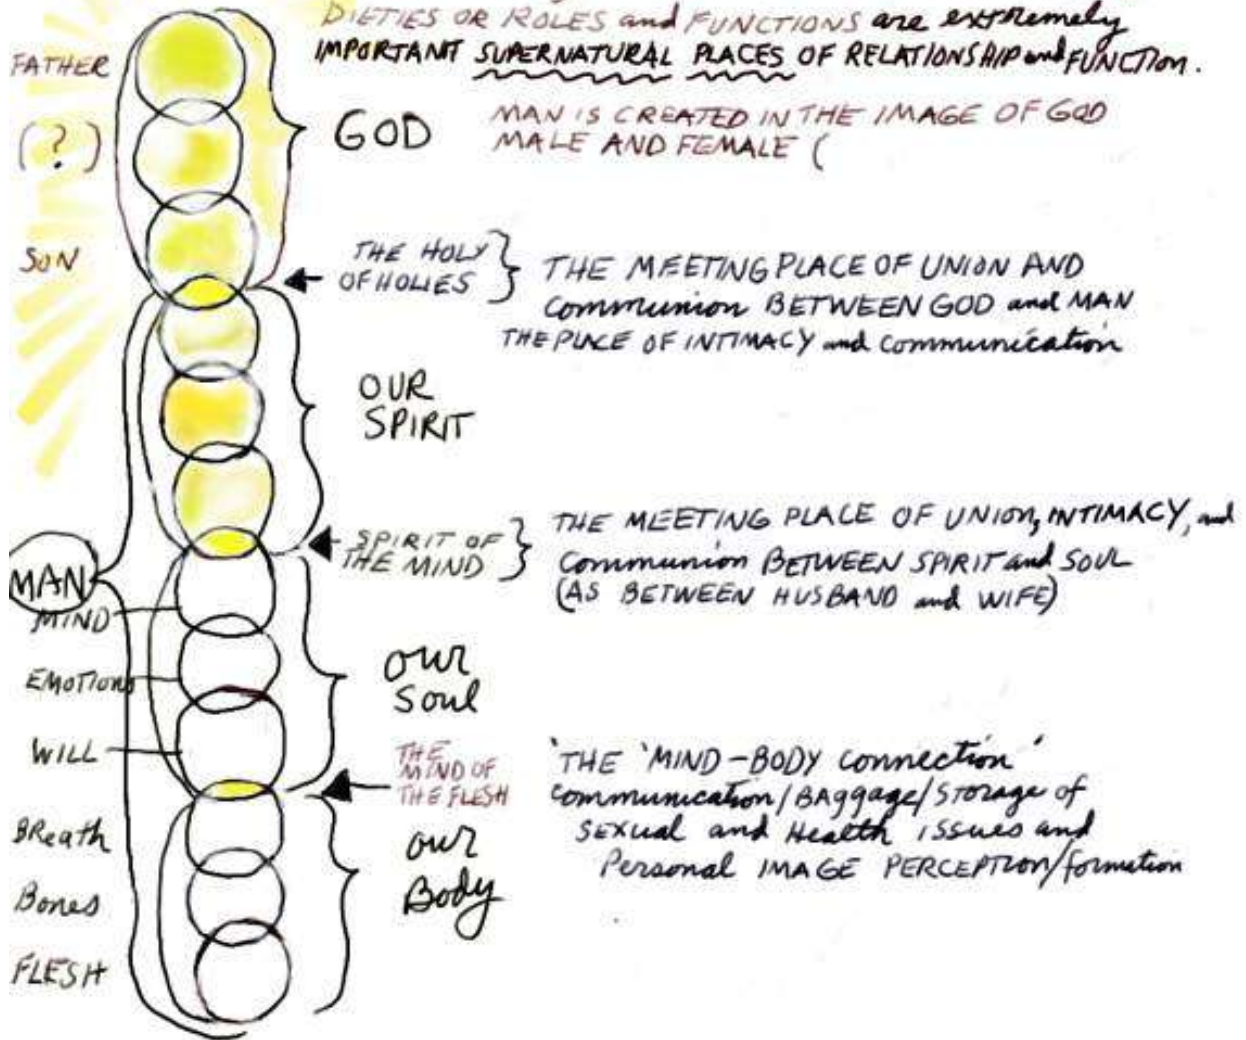 DIETIES OR ROLES and FUNCTIONS are extremely
IMPORTANT SUPERNATURAL PLACES OF RELATIONSHIP and FUNCTION.
FATHER
(?)
GOD
MAN IS CREATED IN THE IMAGE OF GOD
MALE AND FEMALE (
SON
THE HOLY
OF HOLIES
THE MEETING PLACE OF UNION AND
communion BETWEEN GOD and MAN
THE PLACE OF INTIMACY and communication
OUR
SPIRIT
SPIRIT OF
THE MIND
THE MEETING PLACE OF UNION, INTIMACY, and
communion BETWEEN SPIRIT and SOUL
(AS BETWEEN HUSBAND and WIFE)
MAN
MIND
EMOTIONS
our
Soul
WILL
THE
MIND OF
THE FLESH
'THE 'MIND-BODY connection'
communication/BAGGAGE/STORAGE of
SEXUAL and Health ISSUES and
Personal IMAGE PERCEPTION/formation
BReath
our
Body
Bones
FLESH